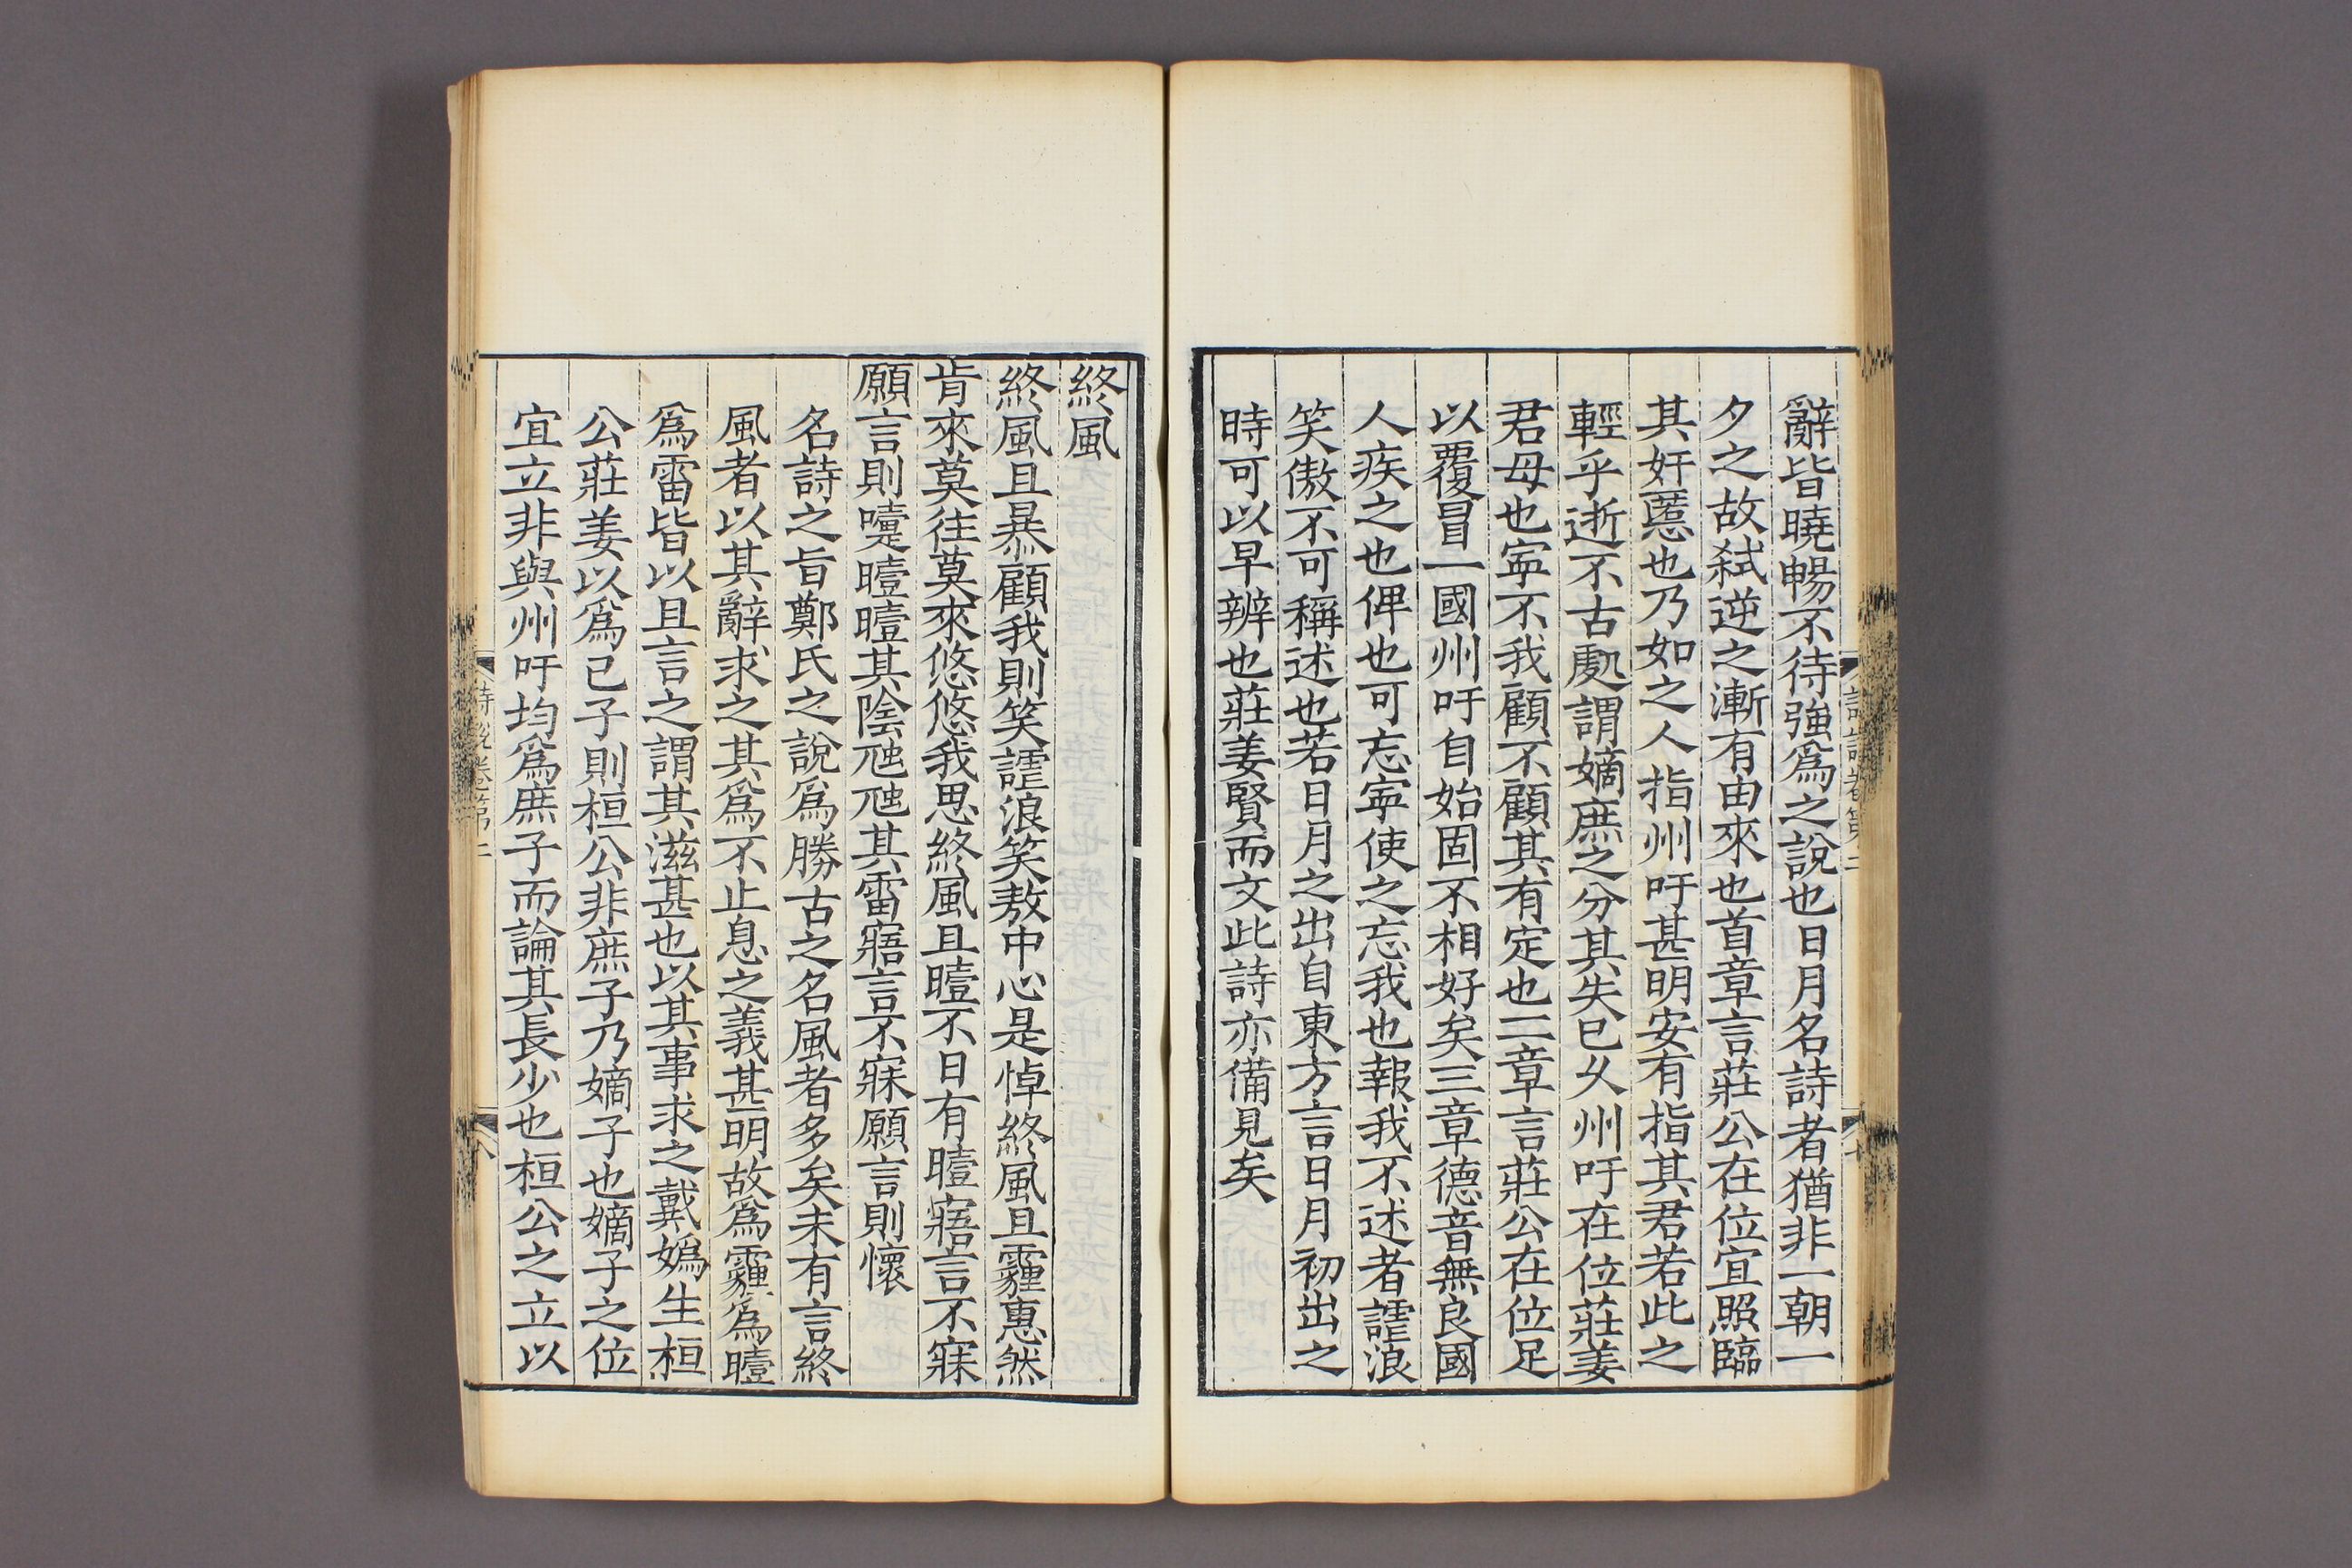 辭皆曉暢不待強爲之說也日月名詩者猶非一朝一
夕之故弑逆之漸有由來也首章言莊公在位宜照臨
其奸慝也乃如之人指州吁甚明安有指其君若此之
輕乎逝不古處謂嫡庶之分其失已乆州吁在位莊姜
君母也寧不我顧不顧其有定也二章言莊公在位足
以覆冒一國州吁自始固不相好矣三章德音無良國
人疾之也俾也可忘寧使之忘我也報我不述者謔浪
笑傲不可稱述也若日月之出自東方言日月初出之
時可以早辨也莊姜賢而文此詩亦備見矣
終風
終風且暴顧我則笑謔浪笑敖中心是悼終風且霾惠然
肯來莫往莫來悠悠我思終風且曀不日有曀寤言不寐
願言則嚏曀曀其陰虺虺其雷寤言不寐願言則懷
名詩之旨鄭氏之說爲勝古之名風者多矣未有言終
風者以其辭求之其爲不止息之義甚明故爲霾爲曀
爲雷皆以且言之謂其滋甚也以其事求之戴嬀生桓
公莊姜以爲已子則桓公非庶子乃嫡子也嫡子之位
宜立非與州吁均爲庶子而論其長少也桓公之立以
詩說卷第二
八